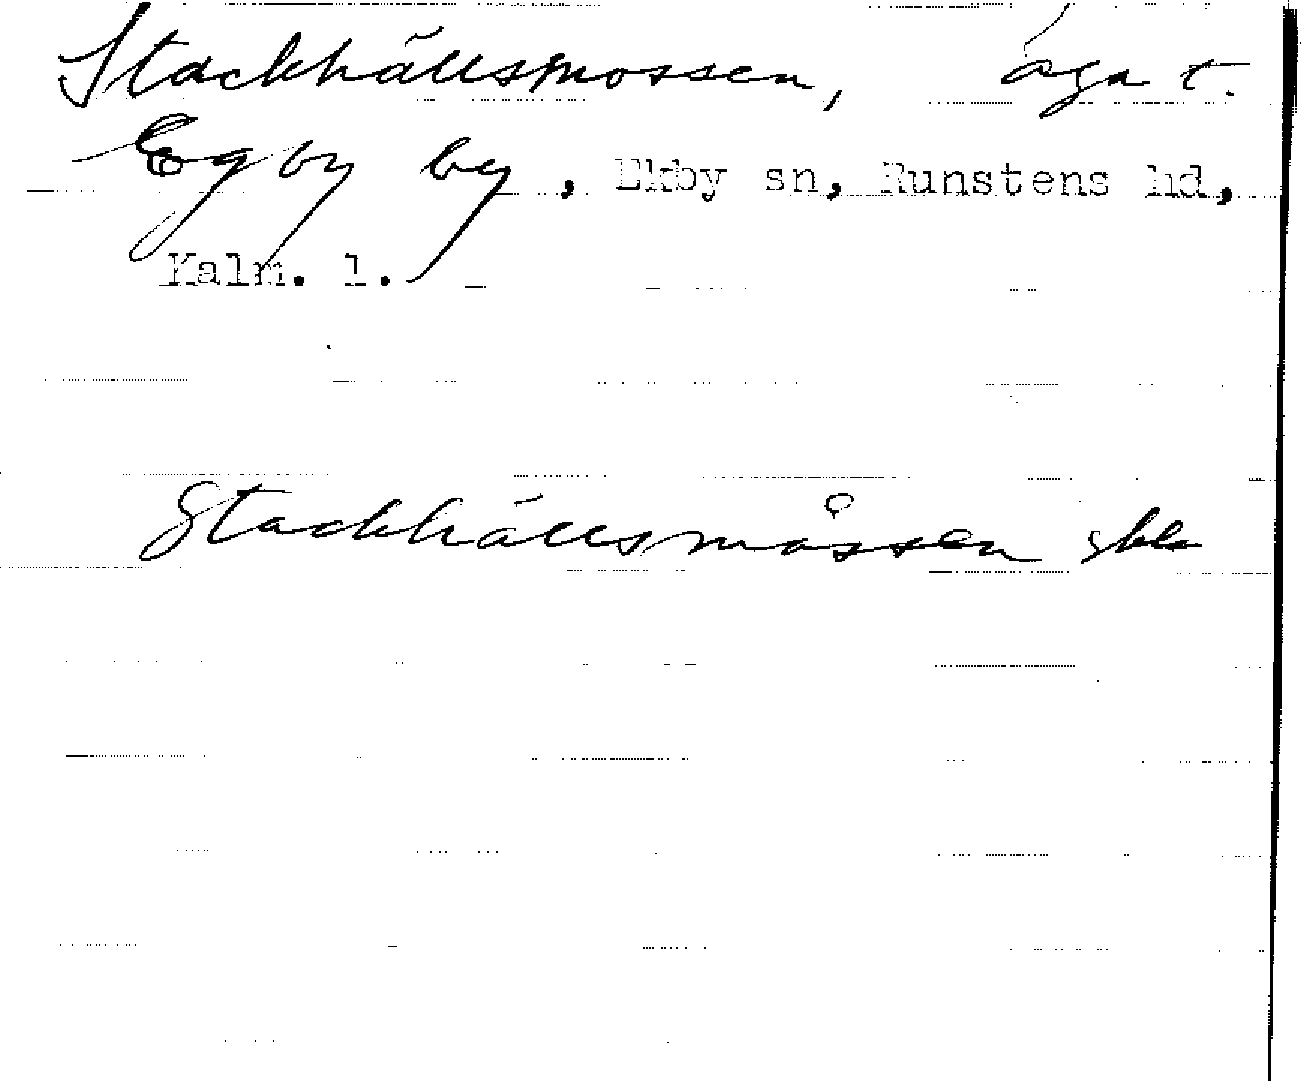 Stackhällsmossen, äga t.
Egby by, Ekby sn, Runstens hd,
Kalm. l.
Stackhällsmåssen skk